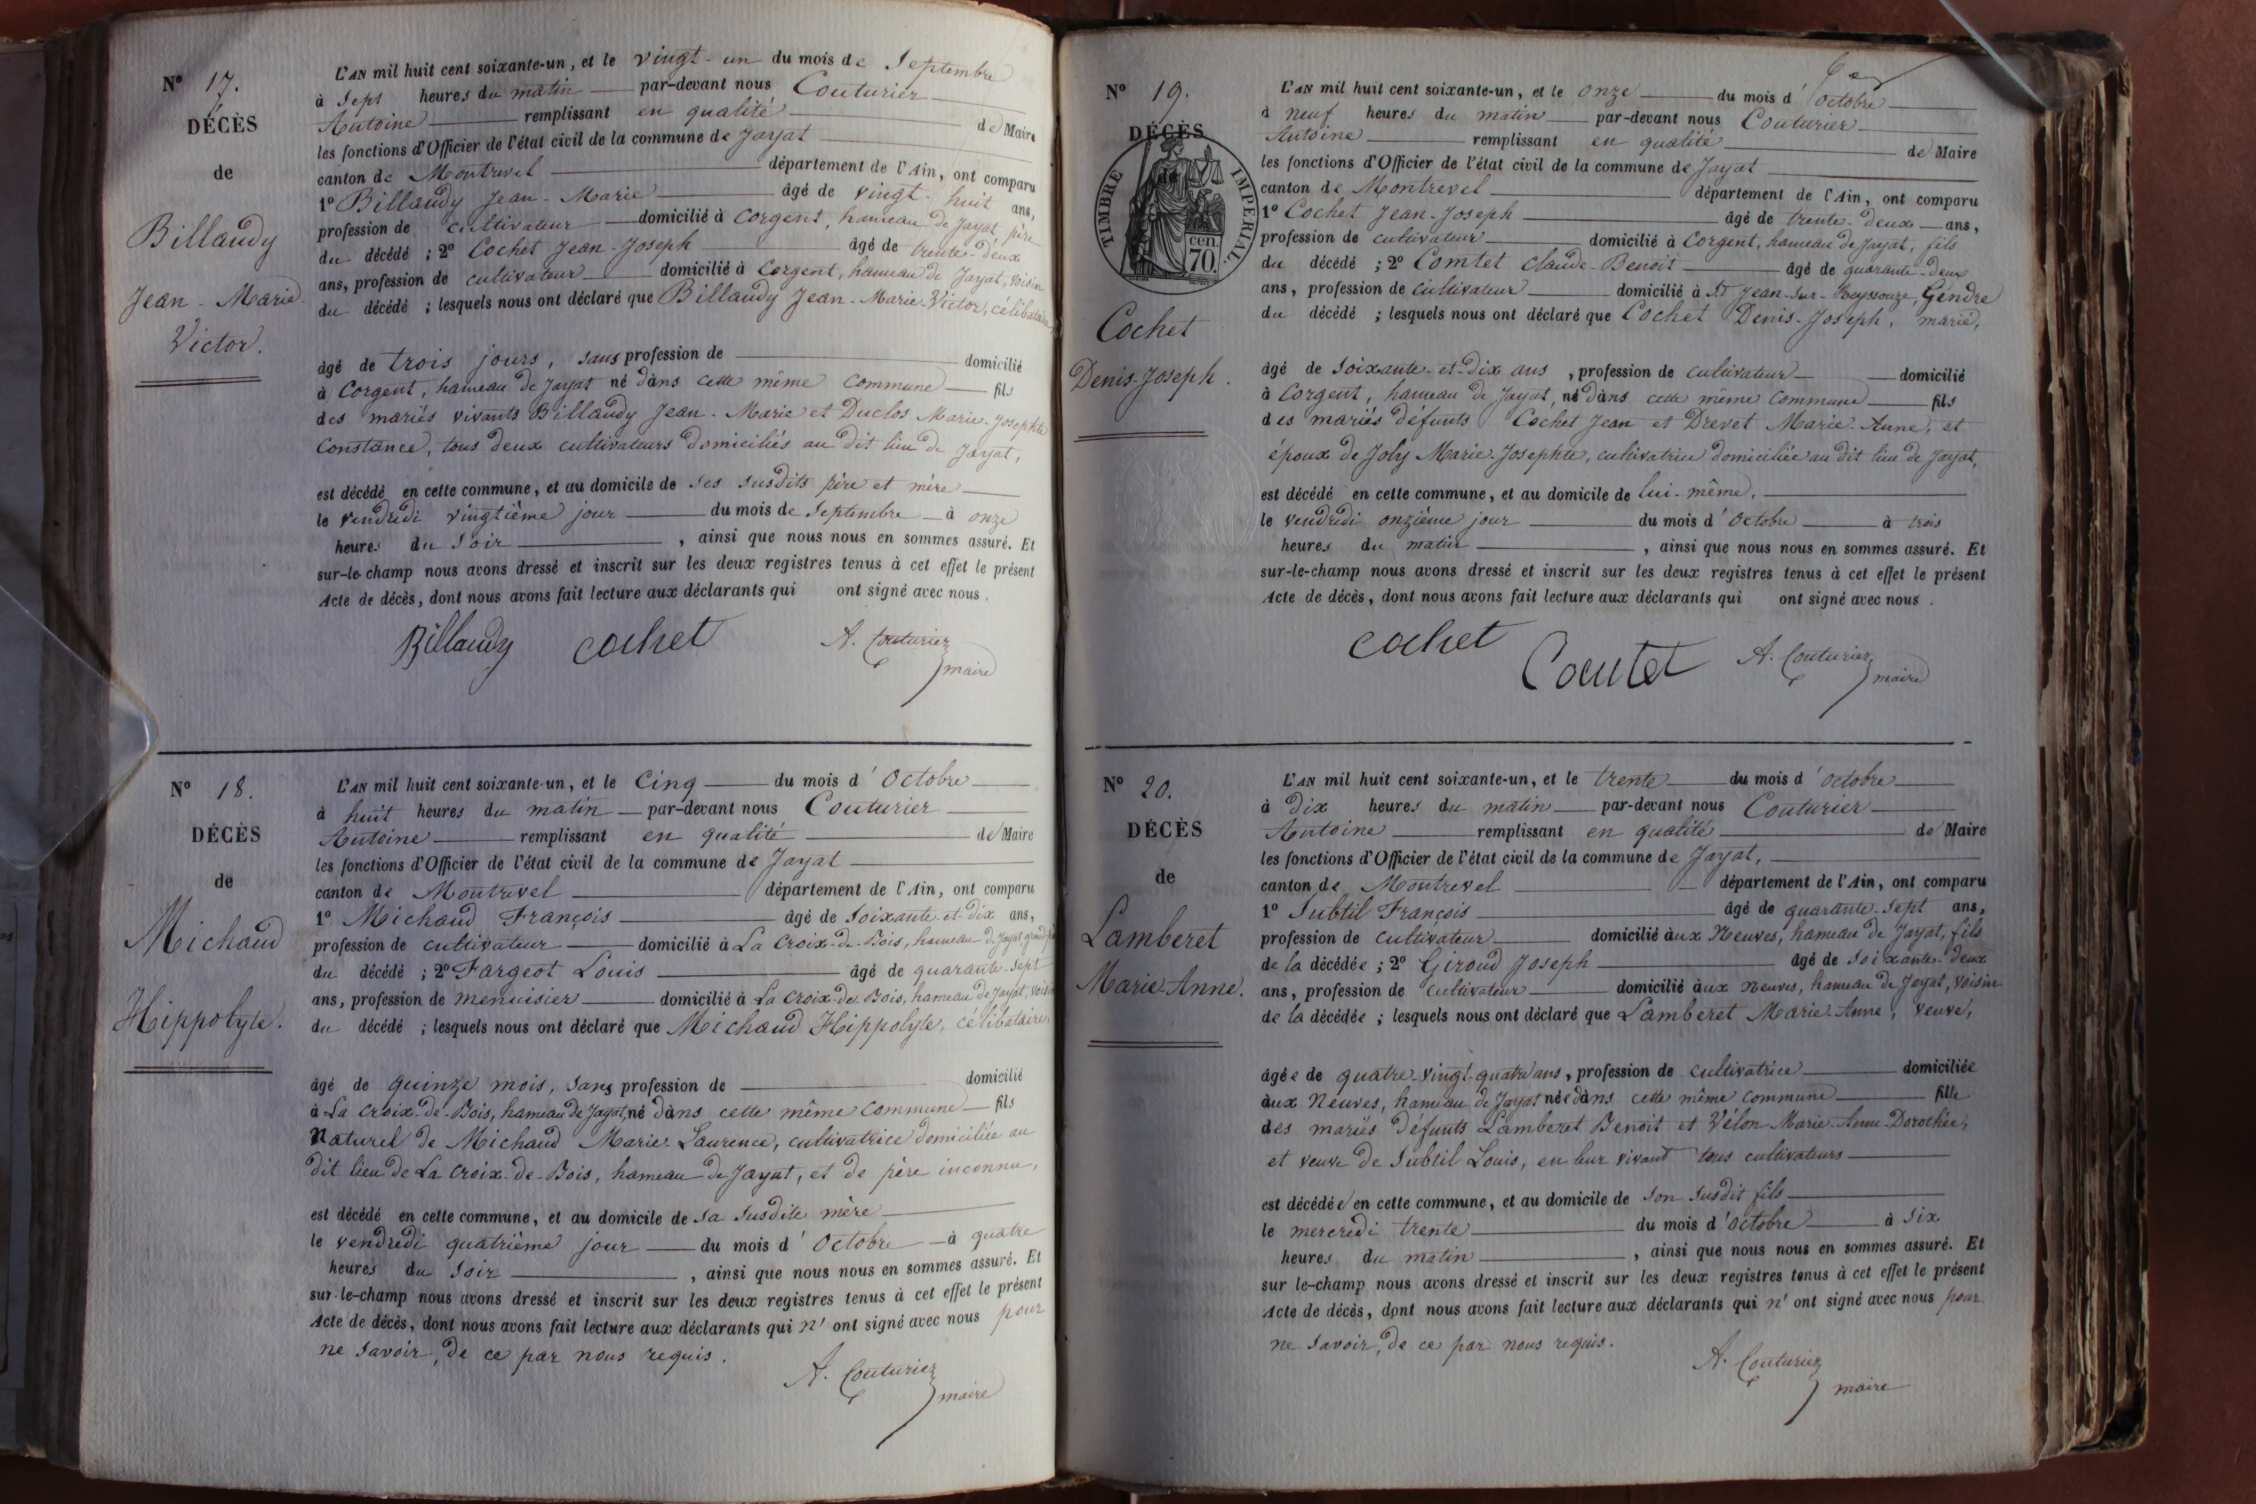 N° 17.
DÉCÈS
de
Billaudy
Jean-Marie
Victor.
L'AN mil huit cent soixante-un, et le vingt-un du mois de Septembre
à Sept heures du matin par-devant nous Couturier
Antoine remplissant en qualité de Maire
les fonctions d'Officier de l'état civil de la commune de Jayat
canton de Montrevel département de l'Ain, ont comparu
1° Billaudy Jean-Marie âgé de vingt-huit ans,
profession de cultivateur domicilié à Corgent, hameau de Jayat, père
du décédé ; 2° Cochet Jean-Joseph âgé de trente-deux
ans, profession de cultivateur domicilié à Corgent, hameau de Jayat, voisin
du décédé ; lesquels nous ont déclaré que Billaudy Jean-Marie-Victor, célibataire
âgé de trois jours, sans profession de domicilié
à Corgent, hameau de Jayat né dans cette même commune fils
des mariés vivants Billaudy Jean-Marie et Duclos Marie-Josephte
Constance, tous deux cultivateurs domiciliés au dit lieu de Jayat,
est décédé en cette commune, et au domicile de ses susdits père et mère
le vendredi vingtième jour du mois de Septembre à onze
heures du soir , ainsi que nous nous en sommes assuré. Et
sur-le-champ nous avons dressé et inscrit sur les deux registres tenus à cet effet le présent
Acte de décès, dont nous avons fait lecture aux déclarants qui ont signé avec nous.
Billaudy cochet A. Couturier
maire
N° 18.
DÉCÈS
de
Michaud
Hippolyte.
L'AN mil huit cent soixante-un, et le Cinq du mois d'Octobre
à huit heures du matin par-devant nous Couturier
Antoine remplissant en qualité de Maire
les fonctions d'Officier de l'état civil de la commune de Jayat
canton de Montrevel département de l'Ain, ont comparu
1° Michaud François âgé de soixante-et-dix ans,
profession de cultivateur domicilié à La Croix-de-Bois, hameau de Jayat, grand
du décédé ; 2° Fargeot Louis âgé de quarante-sept
ans, profession de menuisier domicilié à La Croix-de-Bois, hameau de Jayat, voisin
du décédé ; lesquels nous ont déclaré que Michaud Hippolyte, célibataire,
âgé de quinze mois, sans profession de domicilié
à La Croix-de-Bois, hameau de Jayat, né dans cette même commune fils
Naturel de Michaud Marie-Laurence, cultivatrice domiciliée au
dit lieu de La Croix-de-Bois, hameau de Jayat, et de père inconnu,
est décédé en cette commune, et au domicile de sa susdite mère
le vendredi quatrième jour du mois d'Octobre à quatre
heures du soir , ainsi que nous nous en sommes assuré. Et
sur-le-champ nous avons dressé et inscrit sur les deux registres tenus à cet effet le présent
Acte de décès, dont nous avons fait lecture aux déclarants qui n'ont signé avec nous pour
ne savoir, de ce par nous requis.
A. Couturier
maire
N° 19.
DÉCÈS
de
TIMBRE IMPERIAL.
cen.
70.
Cochet
Denis-Joseph.
L'AN mil huit cent soixante-un, et le onze du mois d'Octobre
à neuf heures du matin par-devant nous Couturier
Antoine remplissant en qualité de Maire
les fonctions d'Officier de l'état civil de la commune de Jayat
canton de Montrevel département de l'Ain, ont comparu
1° Cochet Jean-Joseph âgé de trente-deux ans,
profession de cultivateur domicilié à Corgent, hameau de Jayat, fils
du décédé ; 2° Comtet Claude-Benoit âgé de quarante-deux
ans, profession de cultivateur domicilié à St Jean-sur-Reyssouze, Gendre
du décédé ; lesquels nous ont déclaré que Cochet Denis-Joseph, marié,
âgé de soixante-et-dix ans, profession de cultivateur domicilié
à Corgent, hameau de Jayat, né dans cette même commune fils
des mariés défunts Cochet Jean et Drevet Marie-Anne, et
époux de Joly Marie-Josephte, cultivatrice domiciliée au dit lieu de Jayat,
est décédé en cette commune, et au domicile de lui-même.
le vendredi onzième jour du mois d'Octobre à trois
heures du matin , ainsi que nous nous en sommes assuré. Et
sur-le-champ nous avons dressé et inscrit sur les deux registres tenus à cet effet le présent
Acte de décès, dont nous avons fait lecture aux déclarants qui ont signé avec nous.
cochet Comtet A. Couturier
maire
N° 20.
DÉCÈS
de
Lamberet
Marie-Anne.
L'AN mil huit cent soixante-un, et le trente du mois d'Octobre
à dix heures du matin par-devant nous Couturier
Antoine remplissant en qualité de Maire
les fonctions d'Officier de l'état civil de la commune de Jayat,
canton de Montrevel département de l'Ain, ont comparu
1° Subtil François âgé de quarante-sept ans,
profession de cultivateur domicilié aux Neuves, hameau de Jayat, fils
de la décédée ; 2° Giroud Joseph âgé de soixante-deux
ans, profession de cultivateur domicilié aux Neuves, hameau de Jayat, voisin
de la décédée ; lesquels nous ont déclaré que Lamberet Marie-Anne, veuve,
âgée de quatre-vingt-quatre ans, profession de cultivatrice domiciliée
aux Neuves, hameau de Jayat née dans cette même commune fille
des mariés défunts Lamberet Benoit et Vélon Marie-Anne-Dorothée,
et veuve de Subtil Louis, en leur vivant tous cultivateurs
est décédée en cette commune, et au domicile de son susdit fils
le mercredi trente du mois d'Octobre à six
heures du matin , ainsi que nous nous en sommes assuré. Et
sur le-champ nous avons dressé et inscrit sur les deux registres tenus à cet effet le présent
Acte de décès, dont nous avons fait lecture aux déclarants qui n'ont signé avec nous pour
ne savoir, de ce par nous requis.
A. Couturier
maire